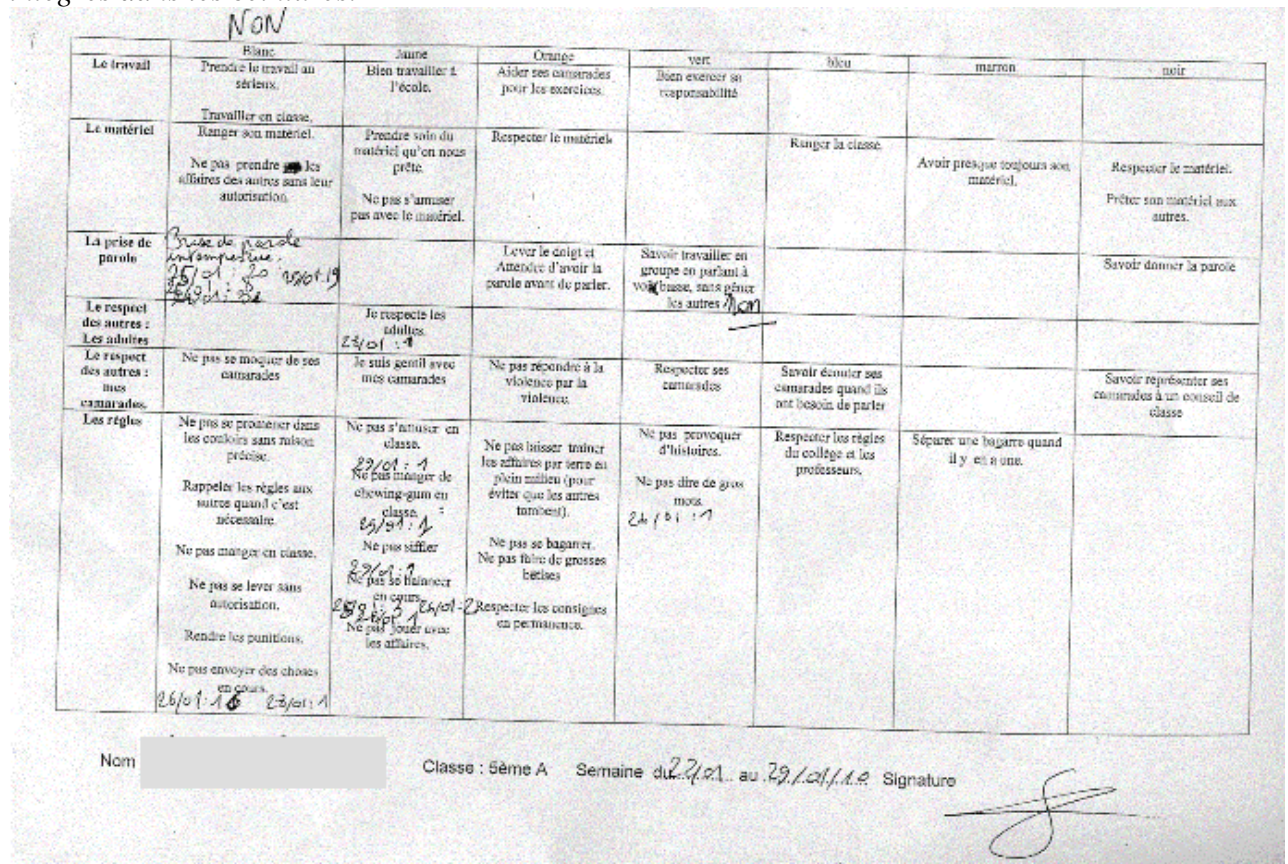 NON
Blanc
Jaune
Orange
vert
bleu
marron
noir
Le travail
Prendre le travail au
sérieux.
Travailler en classe.
Bien travailler à
l'école.
Aider ses camarades
pour les exercices.
Bien exercer sa
responsabilité
Le matériel
Ranger son matériel.
Ne pas prendre les
affaires des autres sans leur
autorisation
Prendre soin du
matériel qu'on nous
prête.
Ne pas s'amuser
pas avec le matériel.
Respecter le matériel
Ranger la classe.
Avoir presque toujours son
matériel.
Respecter le matériel.
Prêter son matériel aux
autres.
La prise de
parole
Prise de parole
intempestive.
25/01 : 20
Lever le doigt et
Attendre d'avoir la
parole avant de parler.
Savoir travailler en
groupe en parlant à
voix basse, sans gêner
les autres Non
Savoir donner la parole
Le respect
des autres :
Les adultes
Je respecte les
adultes.
Le respect
des autres :
mes
camarades.
Ne pas se moquer de ses
camarades
Je suis gentil avec
mes camarades
Ne pas répondre à la
violence par la
violence.
Respecter ses
camarades
Savoir écouter ses
camarades quand ils
ont besoin de parler
Savoir représenter ses
camarades à un conseil de
classe
Les règles
Ne pas se promener dans
les couloirs sans raison
précise.
Rappeler les règles aux
autres quand c'est
nécessaire.
Ne pas manger en classe.
Ne pas se lever sans
autorisation.
Rendre les punitions.
Ne pas envoyer des choses
en cours.
Ne pas s'amuser en
classe.
29/01 : 1
Ne pas manger de
chewing-gum en
classe.
25/01 : 1
Ne pas siffler
Ne pas se balancer
en cours.
Ne pas jouer avec
les affaires.
Ne pas laisser trainer
les affaires par terre en
plein milieu (pour
éviter que les autres
tombent).
Ne pas se bagarrer.
Ne pas faire de grosses
bêtises
Respecter les consignes
en permanence.
Ne pas provoquer
d'histoires.
Ne pas dire de gros
mots.
Respecter les règles
du collège et les
professeurs.
Séparer une bagarre quand
il y en a une.
Nom
Classe : 5ème A Semaine du 22/01 au 29/01/10 Signature